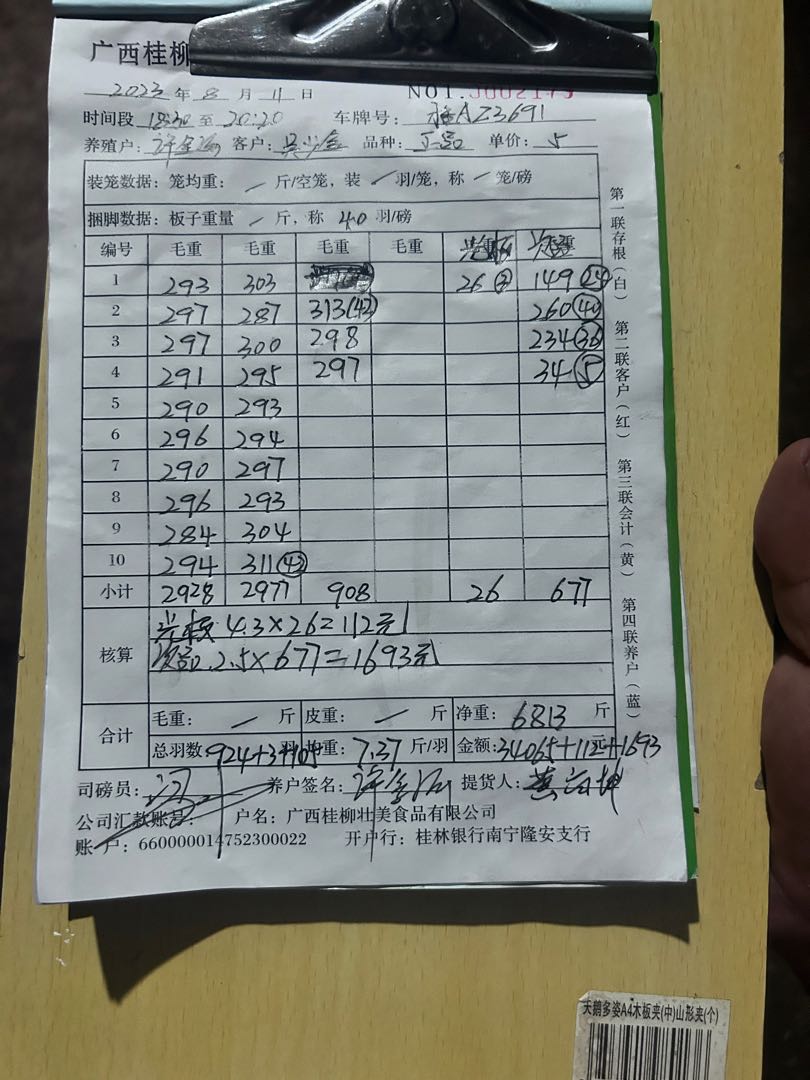 广西桂柳
2023 年 8 月 11 日 NO1.3002173
时间段 18:30 至 20:20 车牌号: 桂AZ3691
养殖户: 客户: 品种: 正品 单价: 5
装笼数据: 笼均重: / 斤/空笼, 装 / 羽/笼, 称 / 笼/磅
捆脚数据: 板子重量 / 斤, 称 40 羽/磅
编号 毛重 毛重 毛重 毛重
1 293 303 26 149
2 297 287 313(42) 260(40)
3 297 300 298 234(36)
4 291 295 297 34(5)
5 290 293
6 296 294
7 290 297
8 296 293
9 284 304
10 294 311(42)
小计 2928 2977 908 26 677
核算 4.3×26=112元
次品 2.5×677=1693元
合计 毛重: / 斤 皮重: / 斤 净重: 6813 斤
总羽数: 924+3+105 羽 均重: 7.37 斤/羽 金额: 34065+112+1693
司磅员: 养户签名: 提货人:
公司汇款账号: 户名: 广西桂柳壮美食品有限公司
账 户: 660000014752300022 开户行: 桂林银行南宁隆安支行
第一联存根(白) 第二联客户(红) 第三联会计(黄) 第四联养户(蓝)
天鹅多姿A4木板夹(中)山形夹(个)